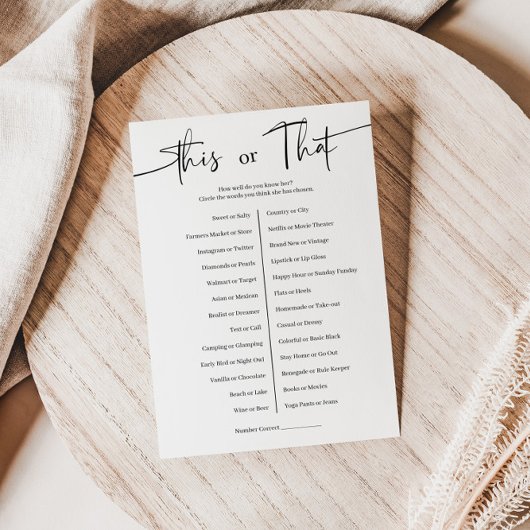 this or That
How well do you know her?
Circle the words you think she has chosen.
Sweet or Salty
Farmers Market or Store
Instagram or Twitter
Diamonds or Pearls
Walmart or Target
Asian or Mexican
Realist or Dreamer
Text or Call
Camping or Glamping
Early Bird or Night Owl
Vanilla or Chocolate
Beach or Lake
Wine or Beer
Country or City
Netflix or Movie Theater
Brand New or Vintage
Lipstick or Lip Gloss
Happy Hour or Sunday Funday
Flats or Heels
Homemade or Take-out
Casual or Dressy
Colorful or Basic Black
Stay Home or Go Out
Renegade or Rule Keeper
Books or Movies
Yoga Pants or Jeans
Number Correct ____________